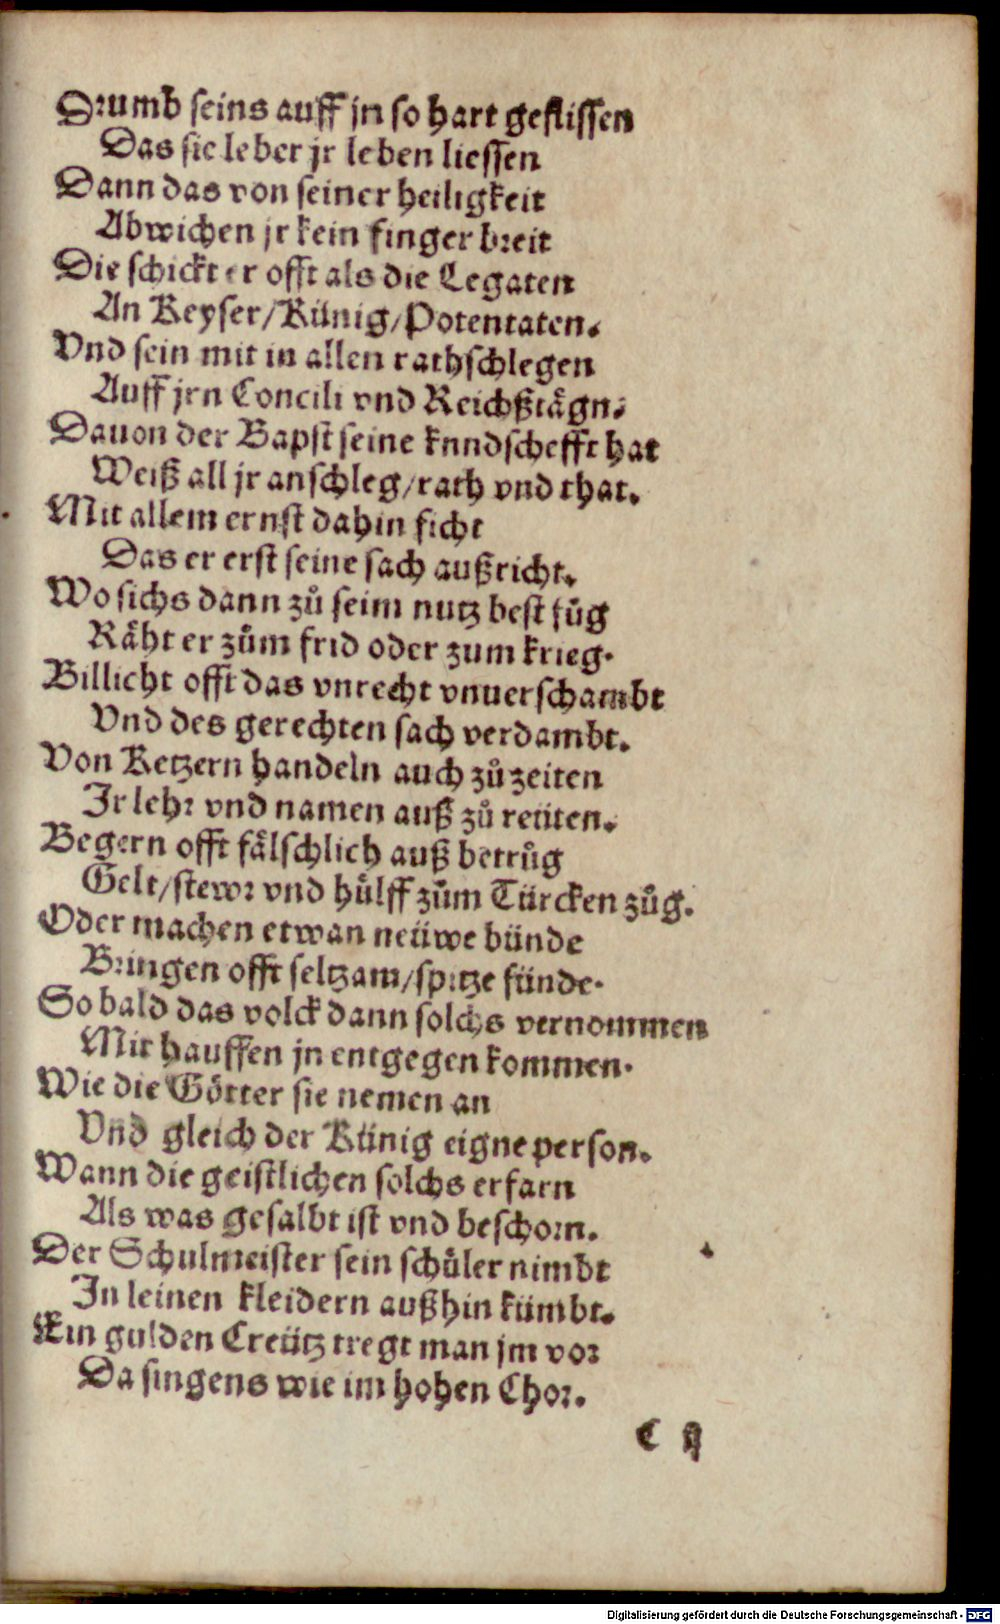 Drumb seins auff jn so hart geflissen
Das sie leber jr leben liessen
Dann das von seiner heiligkeit
Abwichen jr kein finger breit
Die schickt er offt als die Legaten
An Keyser/Künig/Potentaten.
Vnd sein mit in allen rathschlegen
Auff jrn Concili vnd Reichßtägn.
Dauon der Bapst seine knndschefft hat
Weiß all jr anschleg/rath vnd that.
Mit allem ernst dahin ficht
Das er erst seine sach außricht.
Wo sichs dann zů seim nutz best füg
Räht er zům frid oder zum krieg.
Billicht offt das vnrecht vnuerschambt
Vnd des gerechten sach verdambt.
Von Ketzern handeln auch zů zeiten
Ir lehr vnd namen auß zů reüten.
Begern offt fälschlich auß betrůg
Gelt/stewr vnd hülff zům Türcken zůg.
Oder machen etwan neüwe bünde
Bringen offt seltzam/spitze fünde.
So bald das volck dann solchs vernommen
Mit hauffen jn entgegen kommen.
Wie die Götter sie nemen an
Vnd gleich der Künig eigne person.
Wann die geistlichen solchs erfarn
Als was gesalbt ist vnd beschorn.
Der Schulmeister sein schüler nimbt
In leinen kleidern außhin kümbt.
Ein gulden Creütz tregt man jm vor
Da singens wie im hohen Chor.
C ij
Digitalisierung gefördert durch die Deutsche Forschungsgemeinschaft - DFG